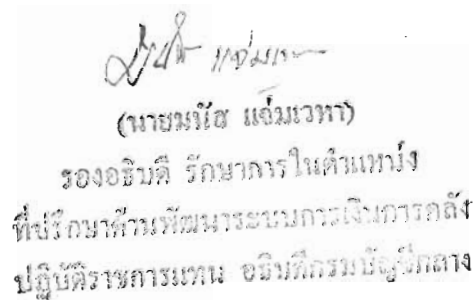 มนัส แจ่มเวหา
(นายมนัส แจ่มเวหา)
รองอธิบดี รักษาการในตำแหน่ง
ที่ปรึกษาด้านพัฒนาระบบการเงินการคลัง
ปฏิบัติราชการแทน อธิบดีกรมบัญชีกลาง